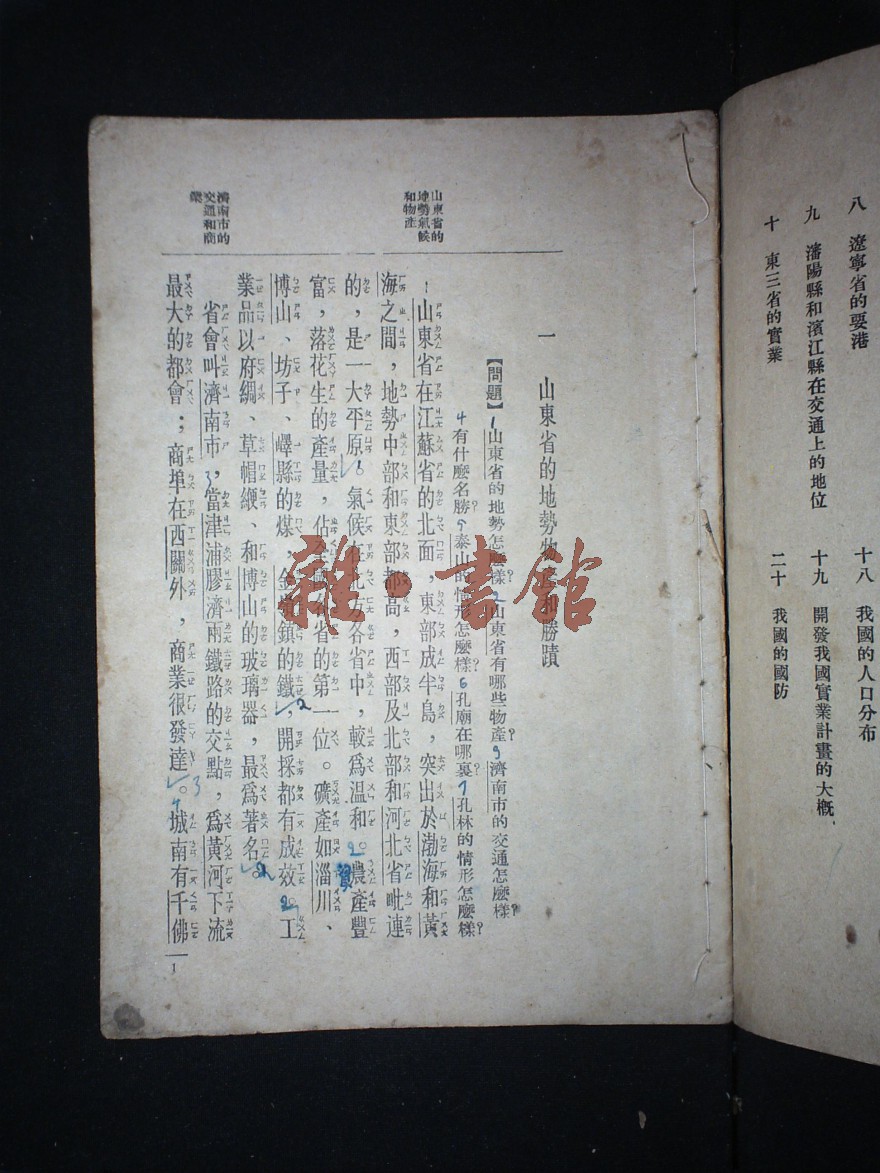 八 遼寧省的要港
九 瀋陽縣和濱江縣在交通上的地位
十 東三省的實業
十八 我國的人口分布
十九 開發我國實業計畫的大概
二十 我國的國防
一 山東省的地勢物產和勝蹟
【問題】1山東省的地勢怎麼樣?2山東省有哪些物產?3濟南市的交通怎麼樣?
4有什麼名勝?5泰山的情形怎麼樣?6孔廟在哪裏?7孔林的情形怎麼樣?
山東省的
地勢氣候
和物產
山東省在江蘇省的北面,東部成半島,突出於渤海和黃
海之間,地勢中部和東部都高,西部及北部和河北省毗連
的,是一大平原。氣候在北方各省中,較爲温和。農產豐
富,落花生的產量,佔全國各省的第一位。礦產如淄川、
博山、坊子、嶧縣的煤,金嶺鎮的鐵,開採都有成效。工
業品以府綢、草帽緶、和博山的玻璃器,最爲著名。
濟南市的
交通和商
業
省會叫濟南市,當津浦膠濟兩鐵路的交點,爲黃河下流
最大的都會;商埠在西關外,商業很發達。城南有千佛
1
雜·書館